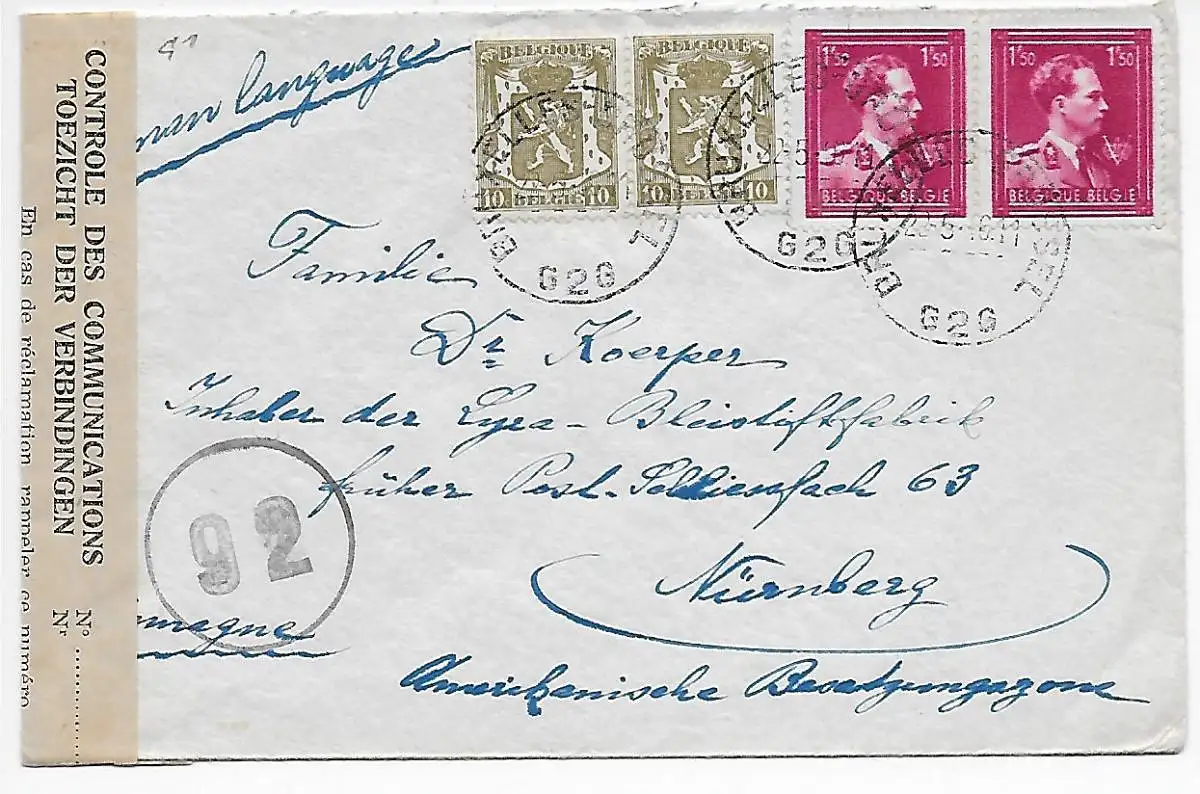 91
man language
BELGIQUE
10 BELGIË 10
BELGIQUE
10 BELGIË 10
1F50 1F50
BELGIQUE BELGIE
1F50 1F50
BELGIQUE BELGIE
G2G
G2G
G2G
CONTROLE DES COMMUNICATIONS N°
TOEZICHT DER VERBINDINGEN Nr
En cas de réclamation rappeler ce numéro
Familie
Dr Koerper
Inhaber der Lyra-Bleistiftfabrik
früher Post-Schliessfach 63
Nürnberg
92
magne
Amerikanische Besatzungszone